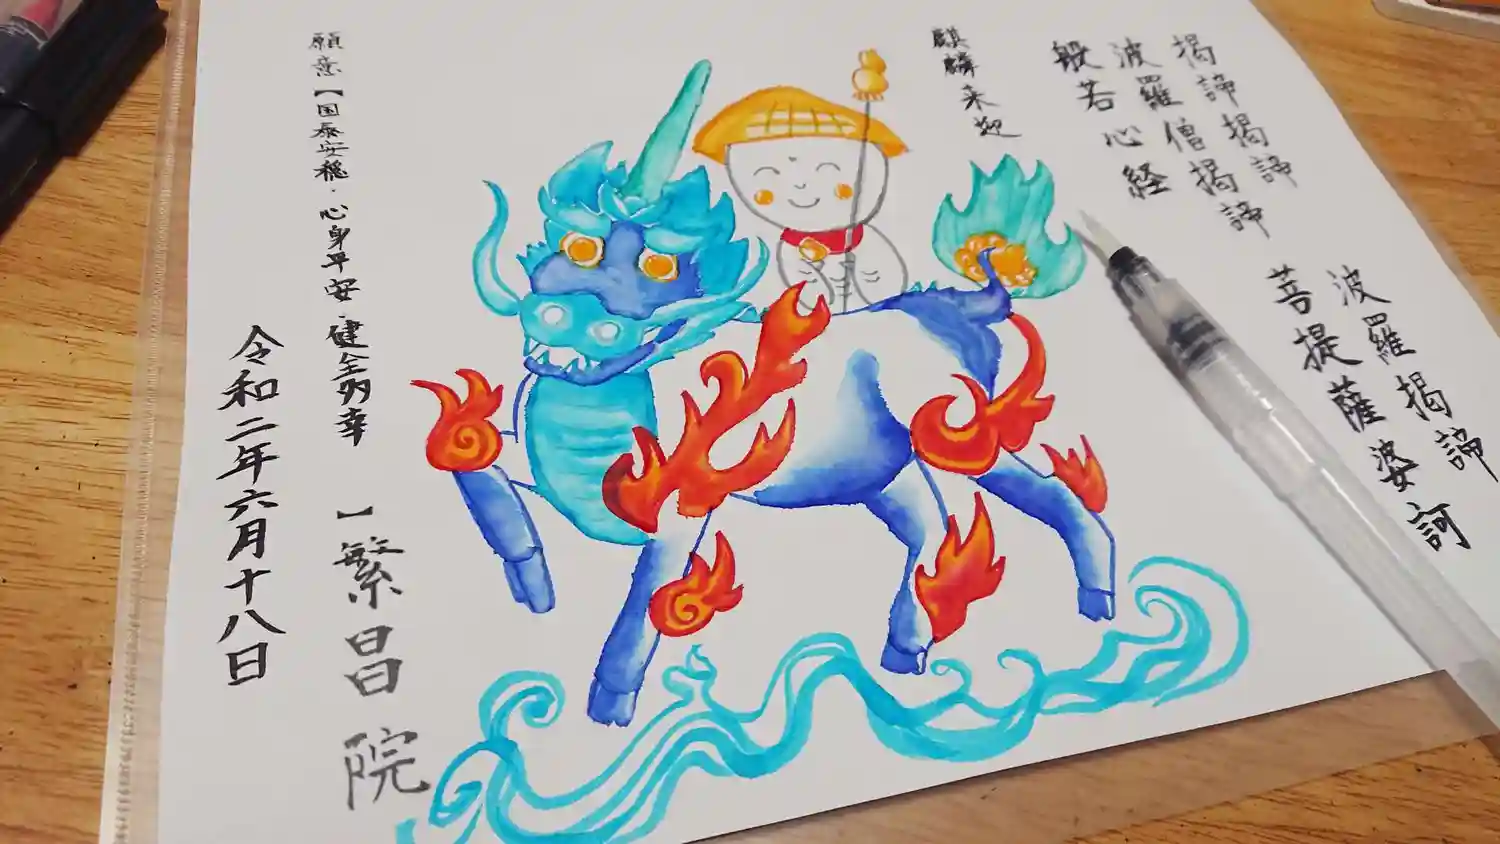 揭諦揭諦
波羅僧揭諦
般若心経
波羅揭諦
菩提薩婆訶
麒麟来迎
願意【国泰安穏・心身平安・健全多幸】
繁昌院
令和二年六月十八日